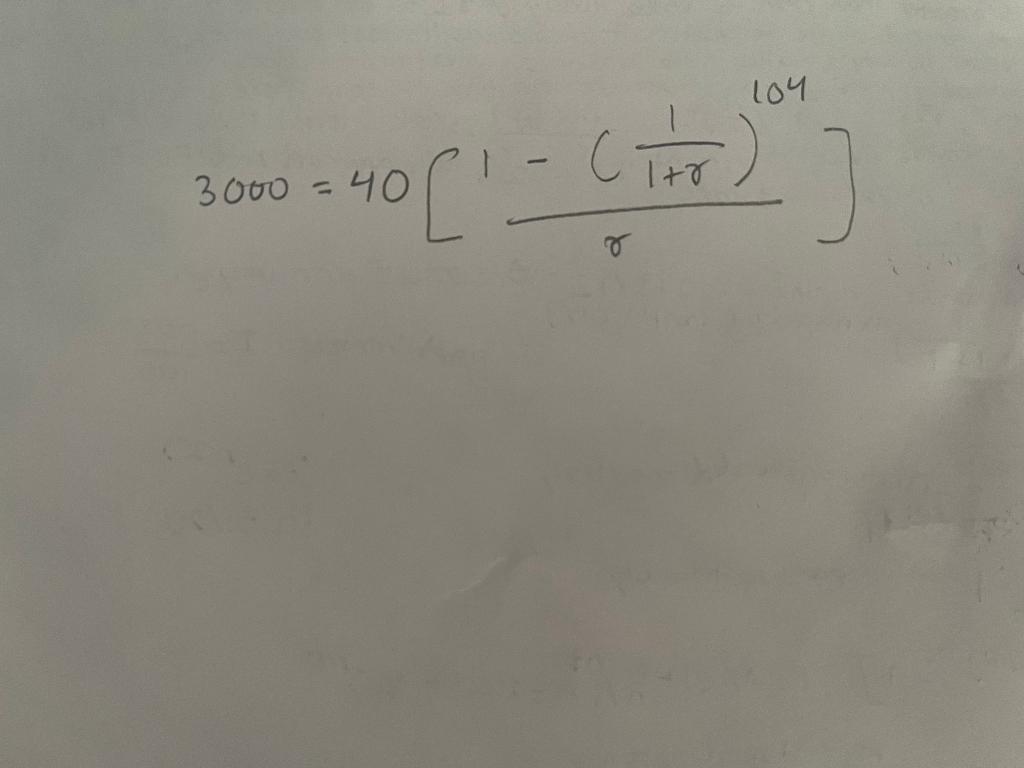 3000 = 40 [ 1 - ( 1 / 1+r )^104 / r ]